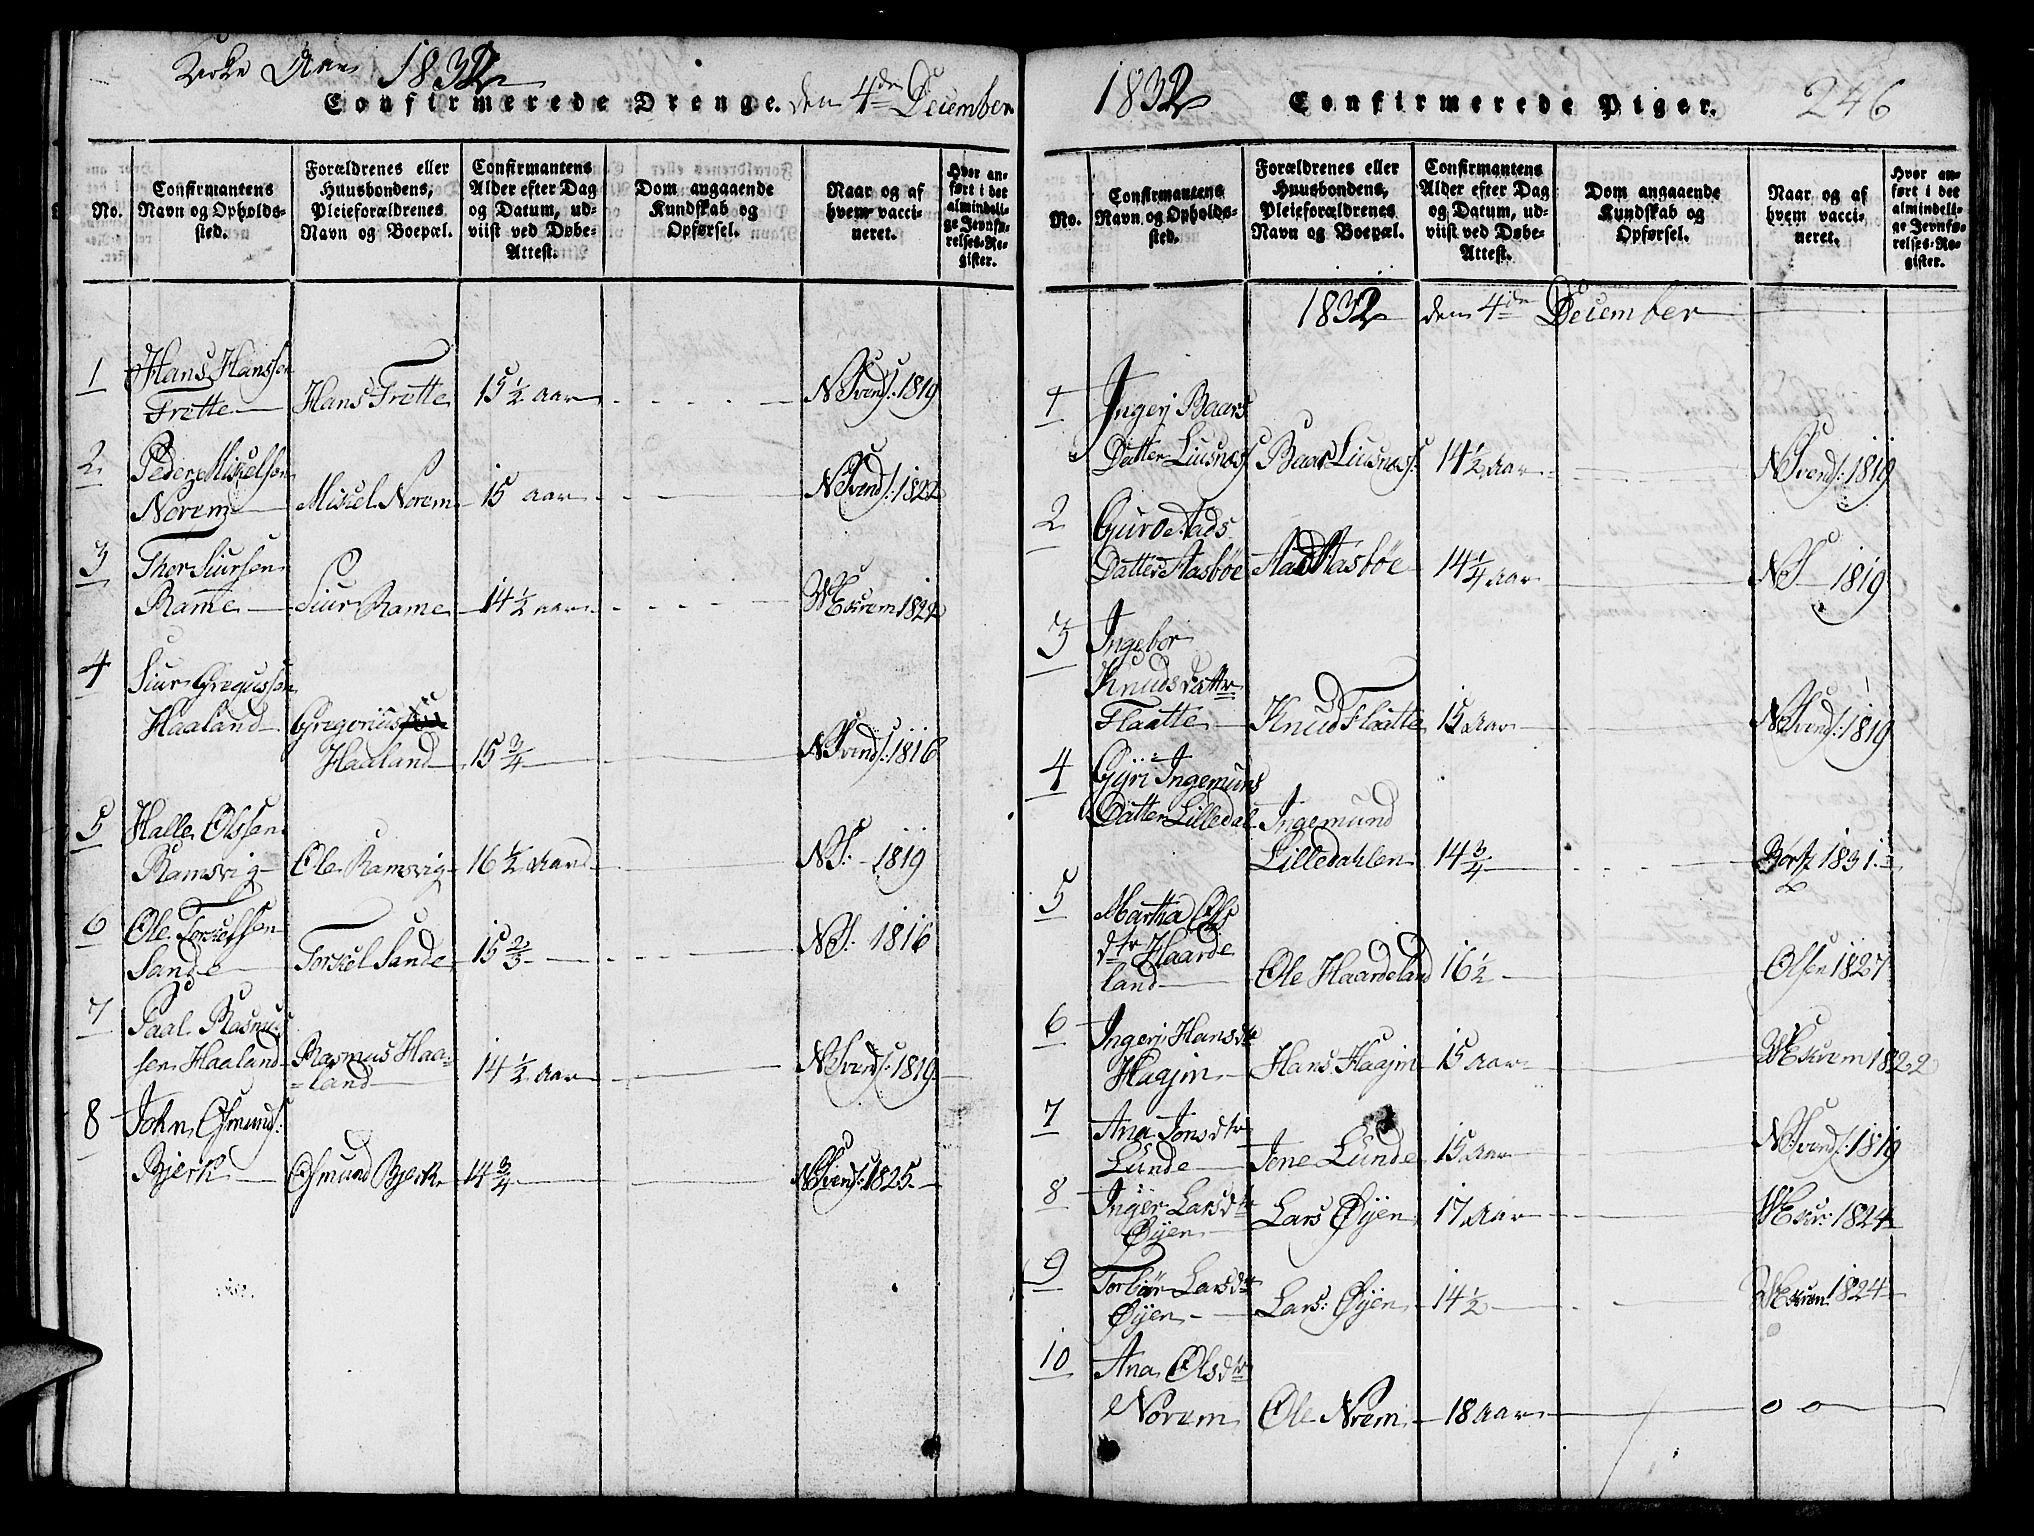 Kirke Aar 1832
Confirmerede Drenge. den 4de December
No.
Confirmantens Navn og Opholds-sted.
Forældrenes eller Huusbondens, Pleieforældrenes Navn og Boepæl.
Confirmantens Alder efter Dag og Datum, ud-viist ved Døbe-Attest.
Dom angaaende Kundskab og Opførsel.
Naar og af hvem vacci-neret.
Hvor an-ført i det almindeli-ge Jevnfø-relses-Re-gister.
1 Hans Hansson
Trette Hans Trette 15 1/2 Aar N Svends: 1819
2 Peder Miskelsøn
Norem Miskel Norem 15 aar N Svends: 1822
3 Thor Siursøn
Rame Siur Rame 14 1/2 aar M Skrem 1822
4 Siur Gregussøn
Haaland Gregorius
Haaland 15 3/4 N Svends: 1816
5 Halle Olssen
Ramsvig Ole Ramsvig 16 1/2 Aar N S: 1819
6 Ole Torskelssøn
Sande Torskel Sande 15 2/3 N S. 1816
7 Paal Rasmus
sen Haaland Rasmus Haa=
=land 14 1/2 Aar N Svends: 1819
8 John Osmunds:
Bjerk Osmund Bjerk 14 3/4 N Svends: 1825
1832 Confirmerede Piger. 246
No.
Confirmantens Navn og Opholds-sted.
Forældrenes eller Huusbondens, Pleieforældrenes Navn og Boepæl.
Confirmantens Alder efter Dag og Datum, ud-viist ved Døbe-Attest.
Dom angaaende Kundskab og Opførsel.
Naar og af hvem vacci-neret.
Hvor an-ført i det almindeli-ge Jevnfø-relses-Re-gister.
1832 den 4de December
1 Ingerj Baars
Datter Liusnæs Baar Liusnæs: 14 1/2 Aar N Svends: 1819
2 Guro Aads
Datter Aasbøe Aad Aasbøe 14 1/4 Aar N S 1819
3 Ingebor
Knudsdattr
Flaatte Knud Flaatte 15 Aar N Svends: 1819
4 Gÿri Ingemuns
Datter Lilledal Ingemund
Lilledahlen 14 3/4 1831
5 Martha Ols
dtr Haarde
land Ole Haardeland 16 1/2 Olsen 1827
6 Ingerj Hansdtr
Haajm Hans Haajm 15 Aar M Skrem 1822
7 Ana Jonsdtr
Lunde Jone Lunde 15 Aar N Svends: 1819
8 Inger Larsdtr
Øÿen Lars Øÿen 17 Aar M Skr: 1824
9 Torbør Larsdtr
Øÿen Lars: Øÿen 14 1/2 M Skrem 1824
10 Ana Olsdtr
Norem Ole Nrem 18 Aar o o